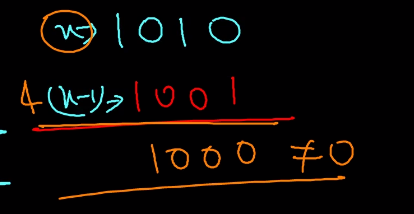 x → 1 0 1 0
& (x-1) → 1 0 0 1
1 0 0 0 ≠ 0